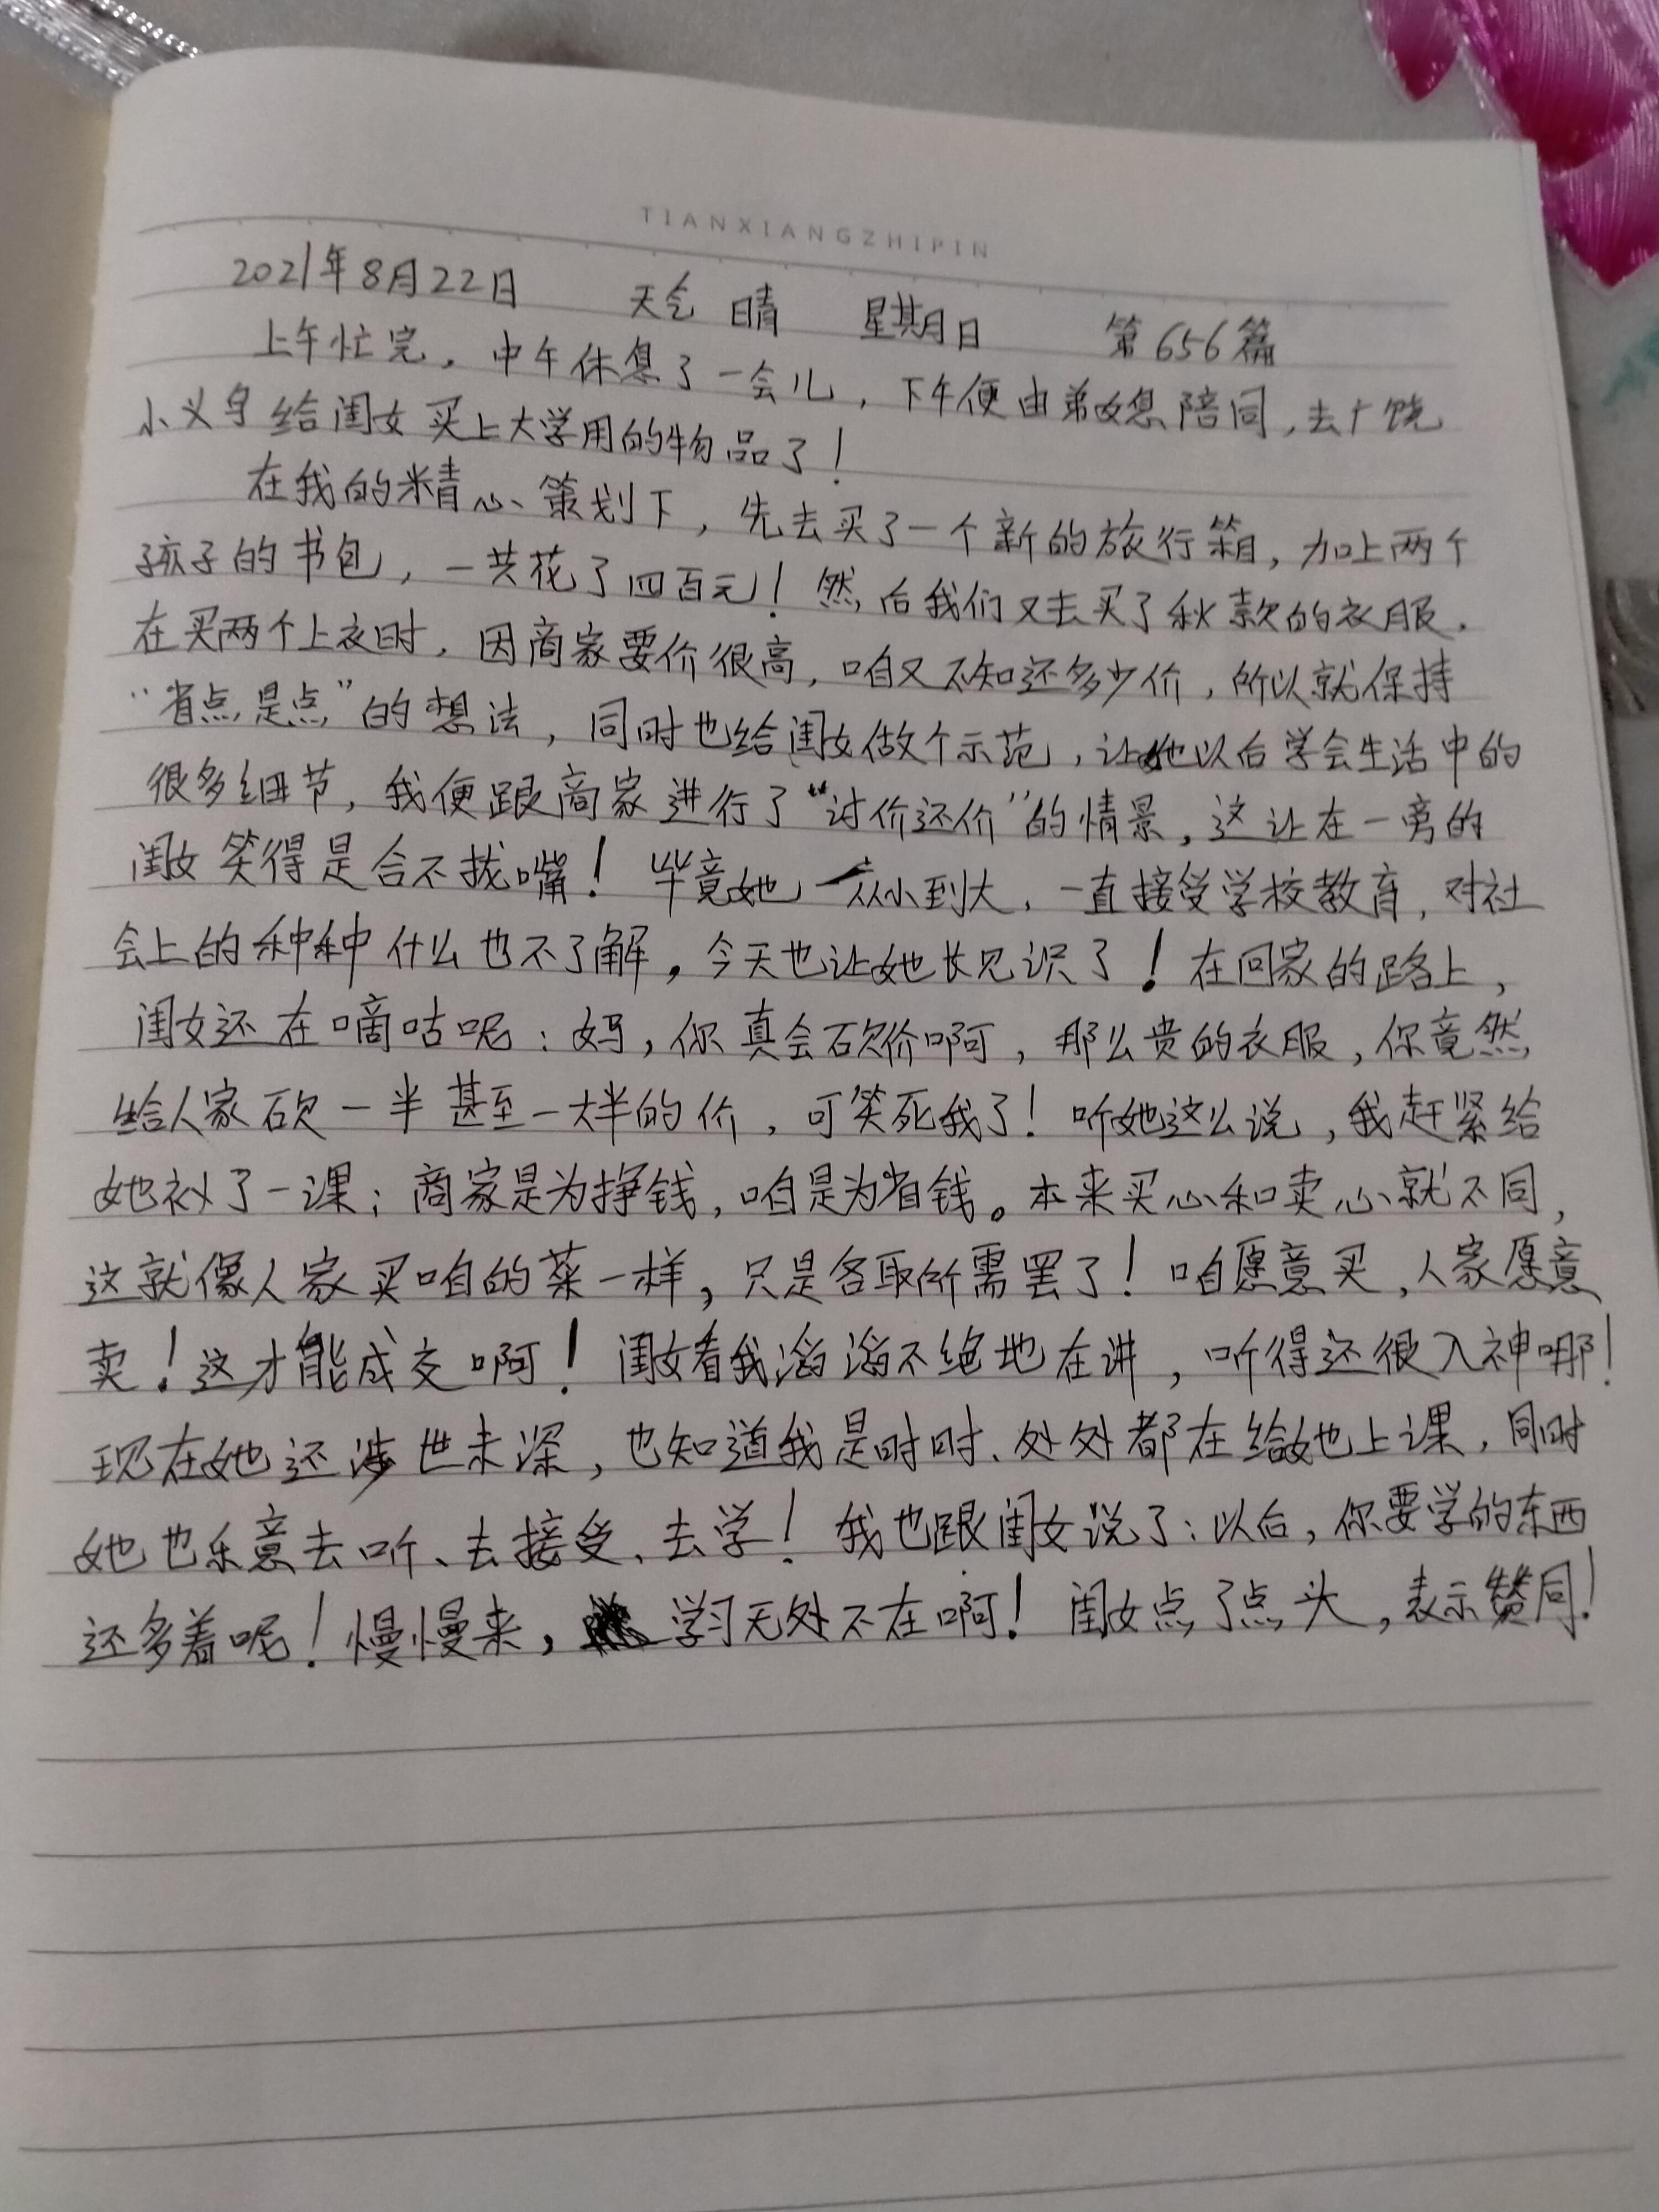 TIANXIANGZHIPIN
2021年8月22日 天气 晴 星期日 第656篇
上午忙完，中午休息了一会儿，下午便由弟媳陪同，去广饶
小义乌给闺女买上大学用的物品了！
在我的精心策划下，先去买了一个新的旅行箱，加上两个
孩子的书包，一共花了四百元！然后我们又去买了秋款的衣服．
在买两个上衣时，因商家要价很高，咱又不知还多少价，所以就保持
“省点是点”的想法，同时也给闺女做个示范，让她以后学会生活中的
很多细节，我便跟商家进行了“讨价还价”的情景，这让在一旁的
闺女笑得是合不拢嘴！毕竟她从小到大，一直接受学校教育，对社
会上的种种什么也不了解，今天也让她长见识了！在回家的路上，
闺女还在嘀咕呢：妈，你真会砍价啊，那么贵的衣服，你竟然
给人家砍一半甚至一大半的价，可笑死我了！听她这么说，我赶紧给
她补了一课；商家是为挣钱，咱是为省钱。本来买心和卖心就不同，
这就像人家买咱的菜一样，只是各取所需罢了！咱愿意买，人家愿意
卖！这才能成交啊！闺女看我滔滔不绝地在讲，听得还很入神哪！
现在她还涉世未深，也知道我是时时、处处都在给她上课，同时
她也乐意去听、去接受、去学！我也跟闺女说了：以后，你要学的东西
还多着呢！慢慢来，学习无处不在啊！闺女点了点头，表示赞同！